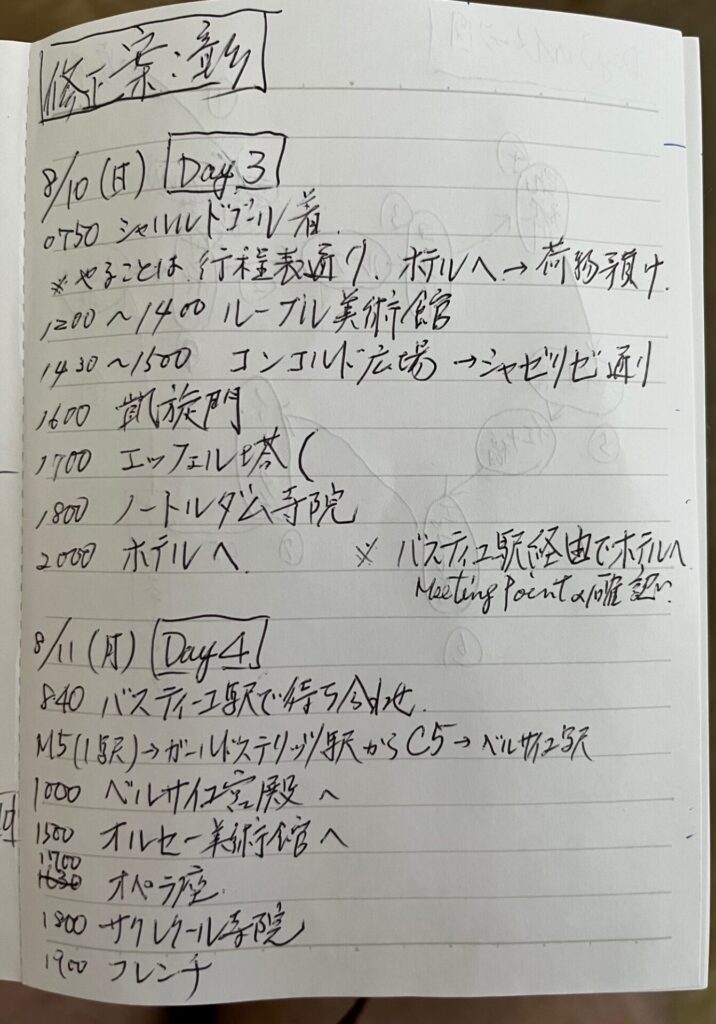 修正案:章乡
8/10(日) Day 3
0750 シャルルドゴール着.
※やることは、行程表通り、ホテルへ→荷物預け.
1200〜1400 ルーブル美術館
1430〜1500 コンコルド広場→シャゼリゼ通り
1600 凱旋門
1700 エッフェル塔(
1800 ノートルダム寺院
2000 ホテルへ ※ バスティユ駅経由でホテルへ
Meeting Pointの確認
8/11(月) Day 4
8:40 バスティーユ駅で待ち合わせ.
M5(1駅)→ガールドステリッツ駅からC5→ベルサイユ駅
1000 ベルサイユ宮殿へ
1500 オルセー美術館へ
1700
1630 オペラ座.
1800 サクレクール寺院
1900 フレンチ